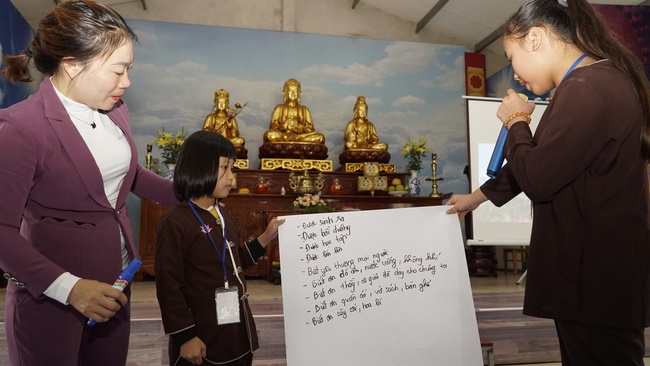 - Được sinh ra
- Được bồi dưỡng
- Được học tập
- Được lớn lên
- Biết yêu thương mọi người
- Biết ơn đồ ăn, nước uống, không khí,
- Biết ơn thầy, cô giáo đã dạy cho chúng ta
- Biết ơn quần áo, vở sách, bàn ghế
- Biết ơn cây cối, hoa lá